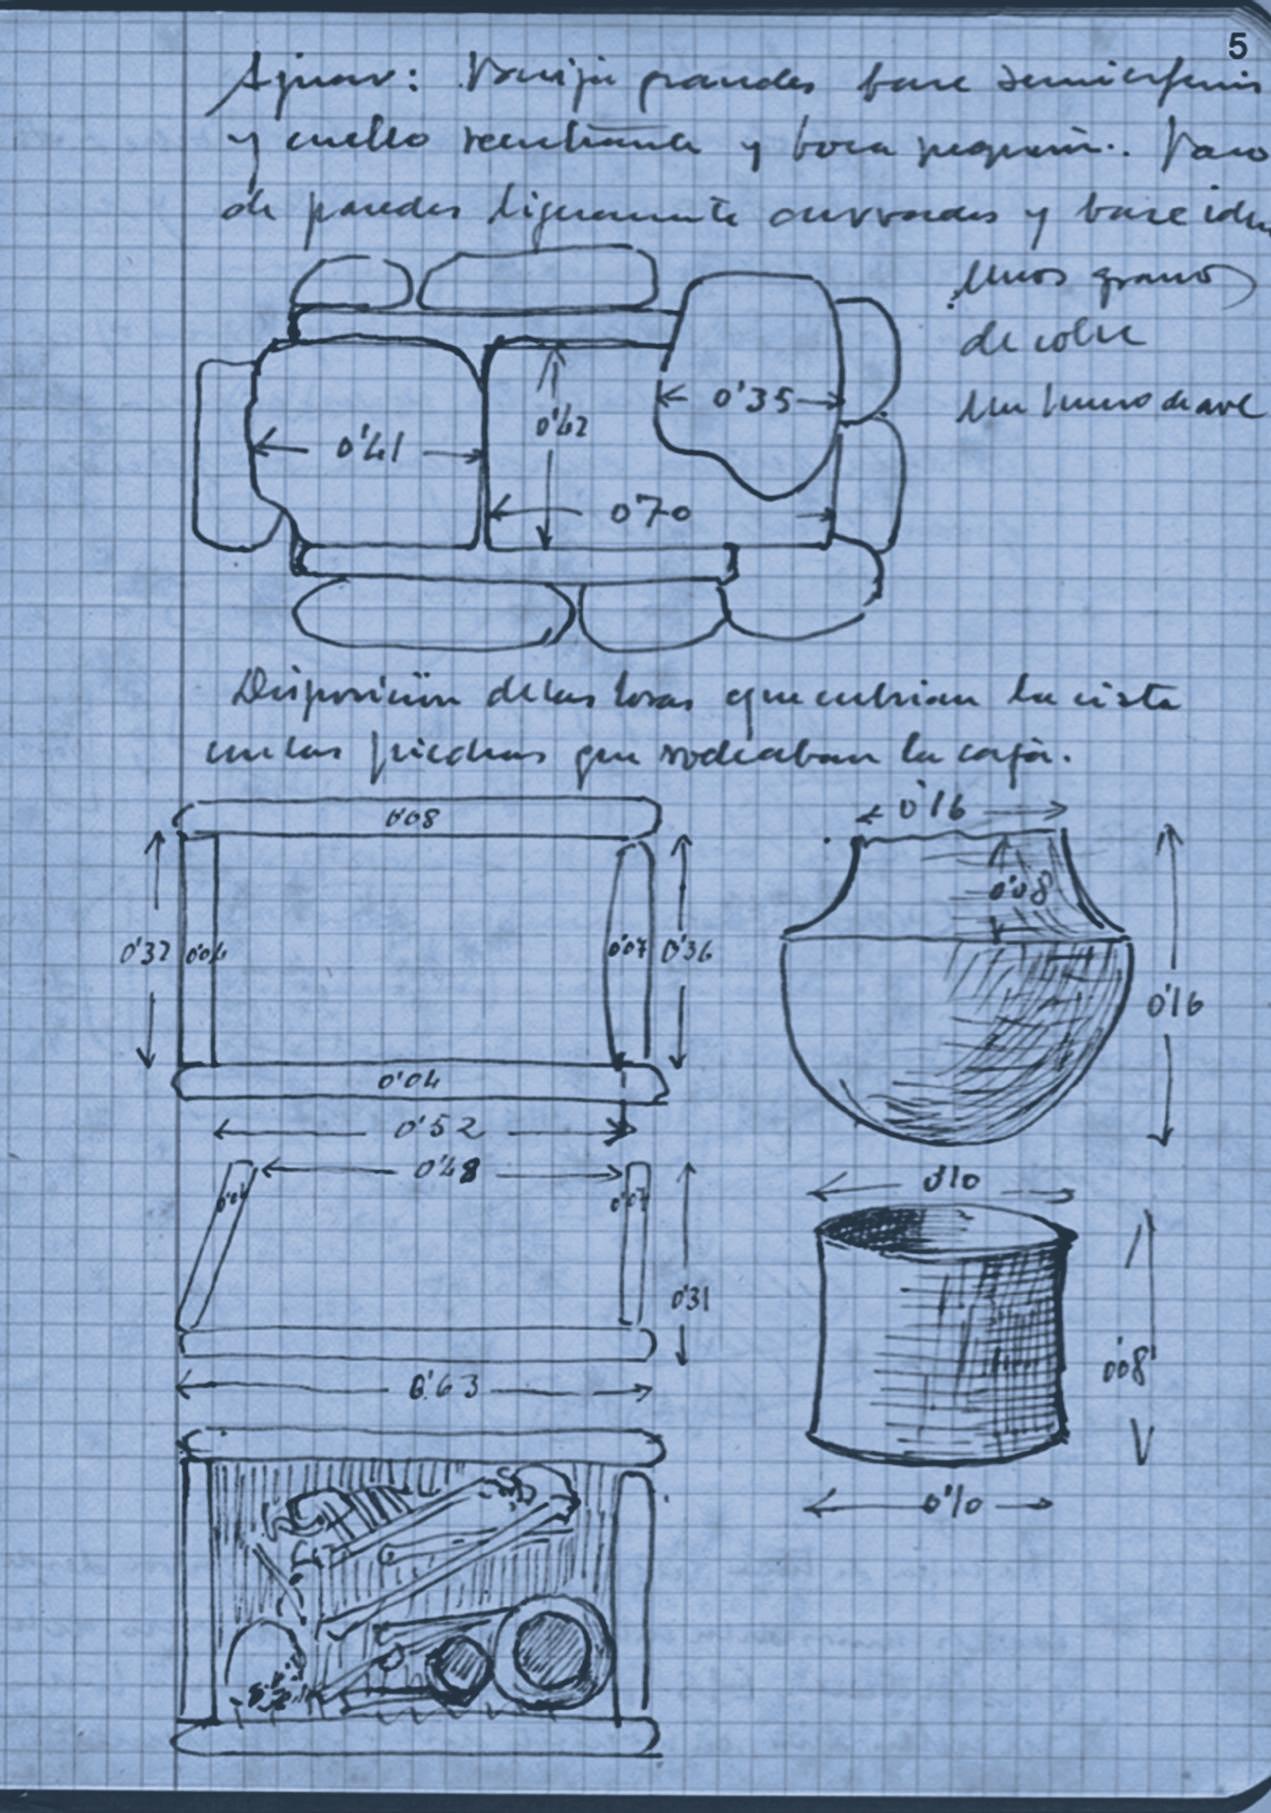 5
Ajuar: Vasija grandes base semiesferi
y cuello reentrante y boca pequeña. Vaso
de paredes ligeramente curvadas y base idem
Unos granos
de cobre
Un hueso de ave
0'35
0'42
0'41
0'70
Disposición de las losas que cubrian la cista
con las piedras que rodeaban la caja.
0'08
0'16
0'08
0'32
0'04
0'07
0'36
0'16
0'04
0'52
0'48
0'10
0'04
0'07
0'31
0'08
0'63
0'10